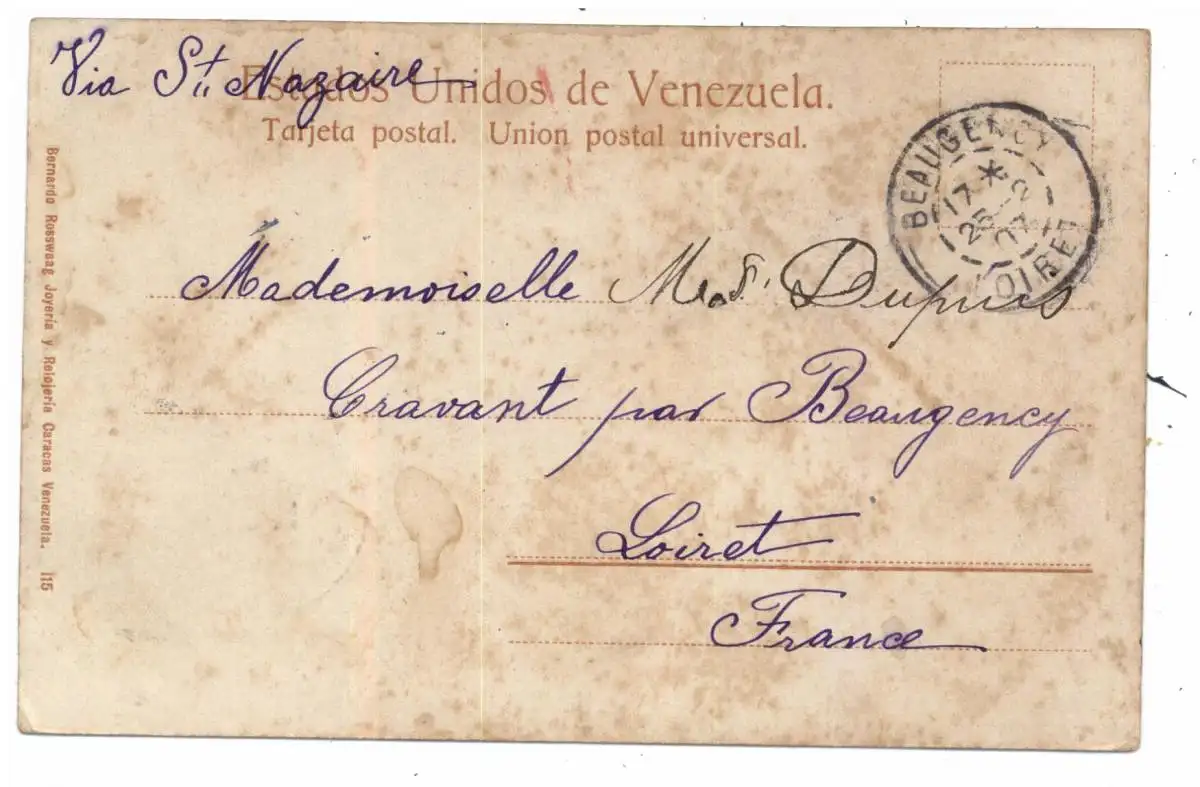 Via St. Nazaire
Estados Unidos de Venezuela.
Tarjeta postal. Union postal universal.
BEAUGENCY
17 *
25 -2
07
LOIRET
Mademoiselle Dupuis
Cravant par Beaugency
Loiret
France
Bernardo Rosswaag Joyería y Relojería Caracas Venezuela. 115